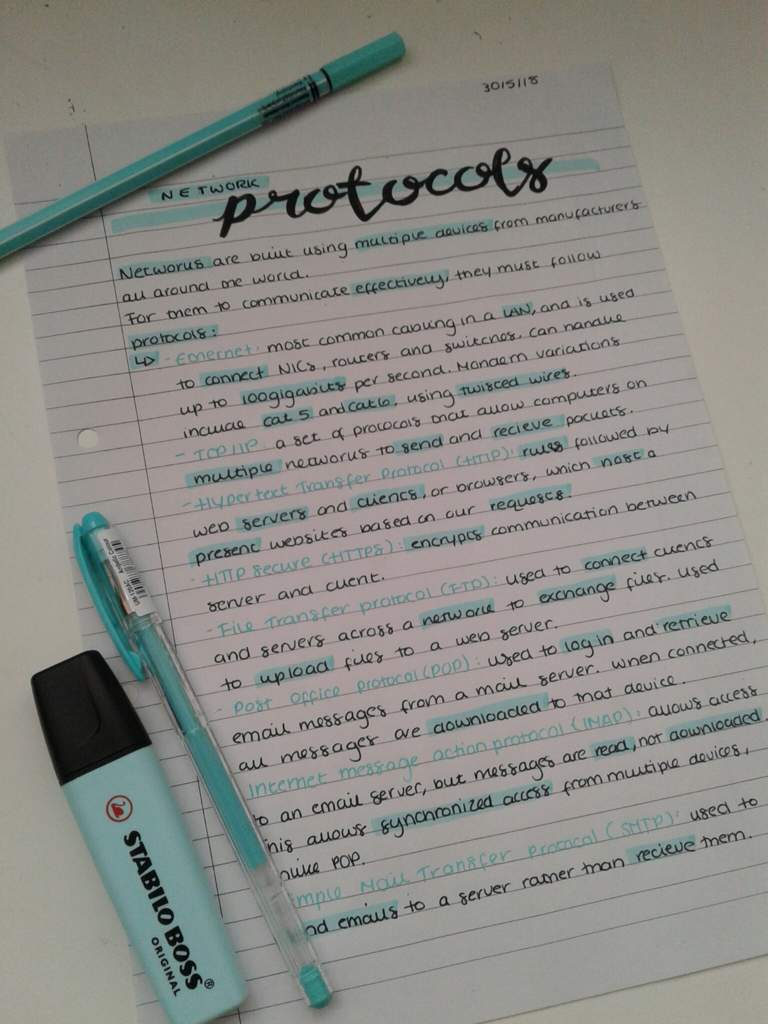 30/5/18
NETWORK
protocols
Networks are built using multiple devices from manufacturers
all around the world.
For them to communicate effectively, they must follow
protocols:
↳ - Ethernet: most common cabling in a LAN, and is used
to connect NICs, routers and switches. Can handle
up to 100gigabits per second. Mondern variations
include cat 5 and cat 6, using twisted wires.
- TCP/IP: a set of protocols that allow computers on
multiple networks to send and recieve packets.
- Hypertext Transfer Protocol (HTTP): rules followed by
web servers and clients, or browsers, which host a
present websites based on our requests.
- HTTP secure (HTTPS): encrypts communication between
server and client.
- File Transfer protocol (FTP): used to connect clients
and servers across a network to exchange files. Used
to upload files to a web server.
- Post Office protocol (POP): used to log in and retrieve
email messages from a mail server. When connected,
all messages are downloaded to that device.
Internet message action protocol (IMAP): allows access
to an email server, but messages are read, not downloaded.
his allows synchronized access from multiple devices,
nlike POP.
imple Mail Transfer protocol (SMTP): used to
nd emails to a server rather than recieve them.
STABILO BOSS®
ORIGINAL